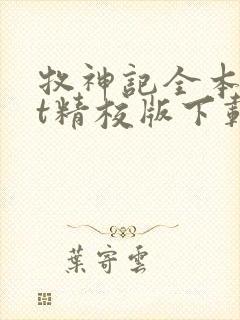 牧神記全本
t精校版下載
葉寄雲